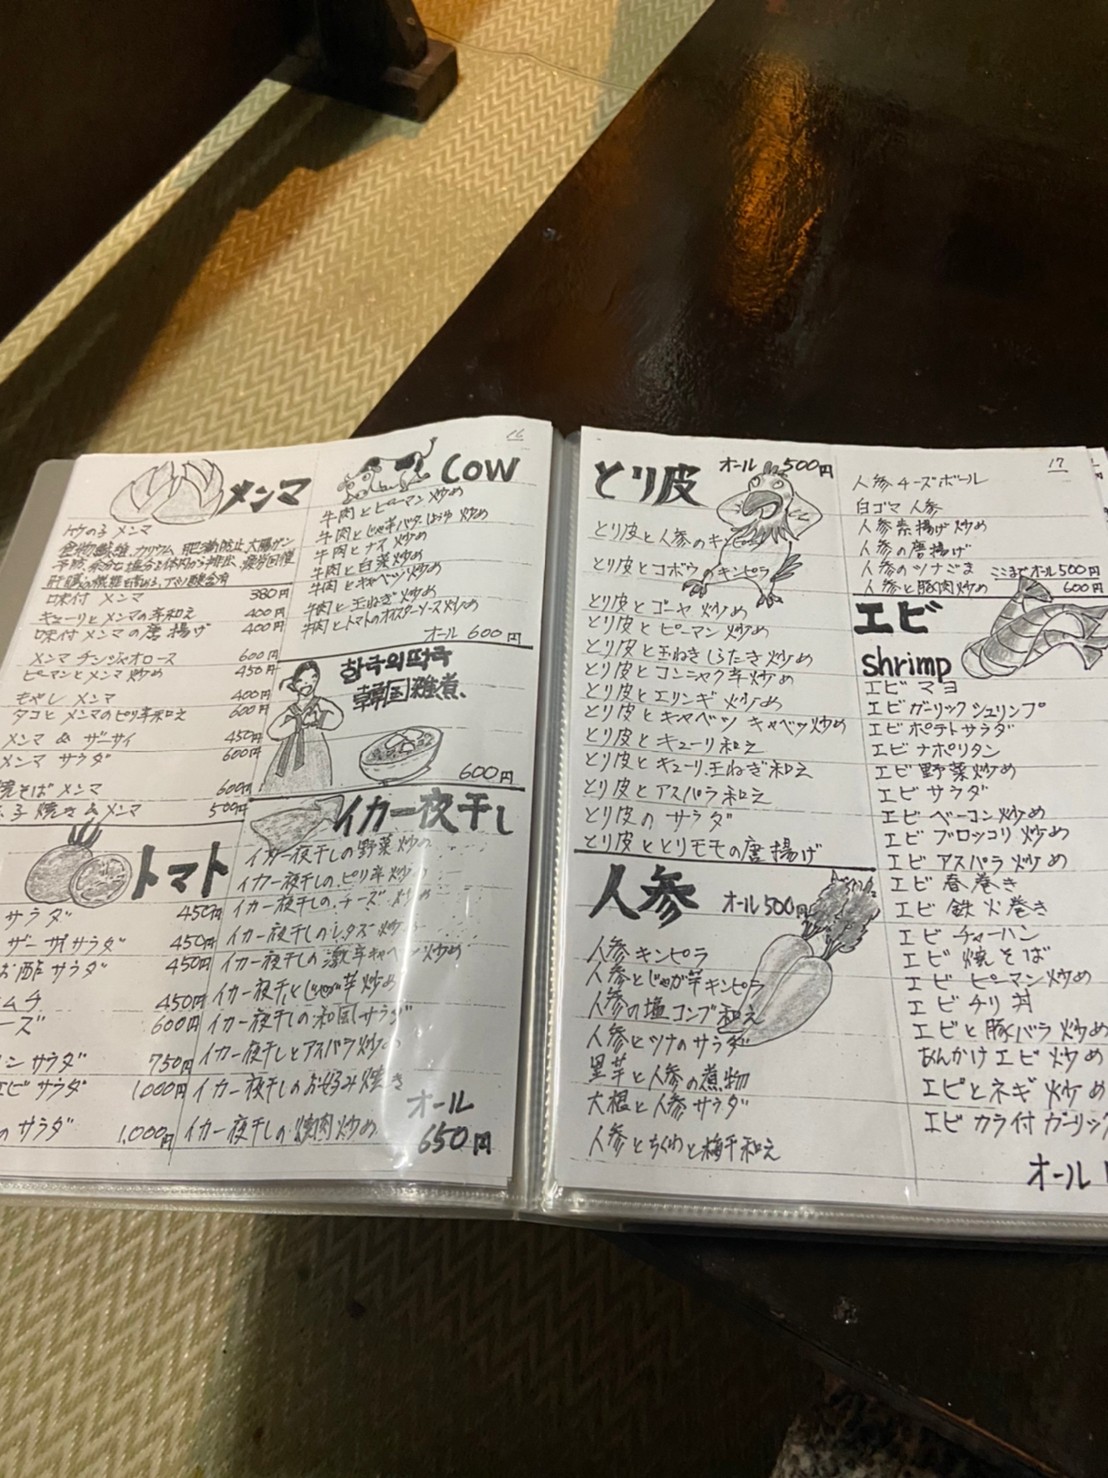 16
メンマ
竹の子 メンマ
食物繊維、カリウム、肥満防止、大腸ガン
予防、余分な塩分を体内から排出、疲労回復
味付 メンマ 380円
キューリとメンマの辛和え 400円
味付メンマの唐揚げ 400円
メンマ チンジャオロース 600円
ピーマンとメンマ炒め 450円
もやし メンマ 400円
タコとメンマのピリ辛和え 600円
メンマ & ザーサイ 450円
メンマ サラダ 600円
焼そばメンマ 600円
子焼き&メンマ 500円
トマト
サラダ 450円
ザーサイサラダ 450円
お酢サラダ 450円
ムチ 450円
ーズ 600円
ンサラダ 750円
エビサラダ 1,000円
のサラダ 1,000円
COW
牛肉とピーマン炒め
牛肉とじゃ芋バターしょうゆ炒め
牛肉とナス炒め
牛肉と白菜炒め
牛肉とキャベツ炒め
牛肉と玉ねぎ炒め
牛肉とトマトのオイスターソース炒め
オール 600円
한국의떡국
韓国雑煮
600円
イカ一夜干し
イカ一夜干しの野菜炒め
イカ一夜干しのピリ辛炒め
イカ一夜干しのチーズ炒め
イカ一夜干しのレタス炒め
イカ一夜干しの激辛キャベツ炒め
イカ一夜干しとじゃが芋炒め
イカ一夜干しの和風サラダ
イカ一夜干しとアスパラ炒め
イカ一夜干しのお好み焼き
イカ一夜干しの焼肉炒め
オール
650円
17
とり皮 オール 500円
とり皮と人参のキンピラ
とり皮とゴボウのキンピラ
とり皮とゴーヤ炒め
とり皮とピーマン炒め
とり皮と玉ねぎしらたき炒め
とり皮とコンニャク辛炒め
とり皮とエリンギ炒め
とり皮とキャベツ キャベツ炒め
とり皮とキューリ和え
とり皮とキューリ、玉ねぎ和え
とり皮とアスパラ和え
とり皮のサラダ
とり皮ととりモモの唐揚げ
人参 オール500円
人参キンピラ
人参とじゃが芋キンピラ
人参の塩コンブ和え
人参とツナのサラダ
里芋と人参の煮物
大根と人参サラダ
人参とちくわと梅干和え
人参チーズボール
白ゴマ人参
人参素揚げ炒め
人参の唐揚げ
人参のツナごま
ここまでオール500円
人参と豚肉炒め 600円
エビ
Shrimp
エビマヨ
エビガーリックシュリンプ
エビポテトサラダ
エビナポリタン
エビ野菜炒め
エビサラダ
エビベーコン炒め
エビブロッコリ炒め
エビアスパラ炒め
エビ春巻き
エビ鉄火巻き
エビチャーハン
エビ焼そば
エビピーマン炒め
エビチリ丼
エビと豚バラ炒め
あんかけエビ炒め
エビとネギ炒め
エビカラ付ガーリッ
オール